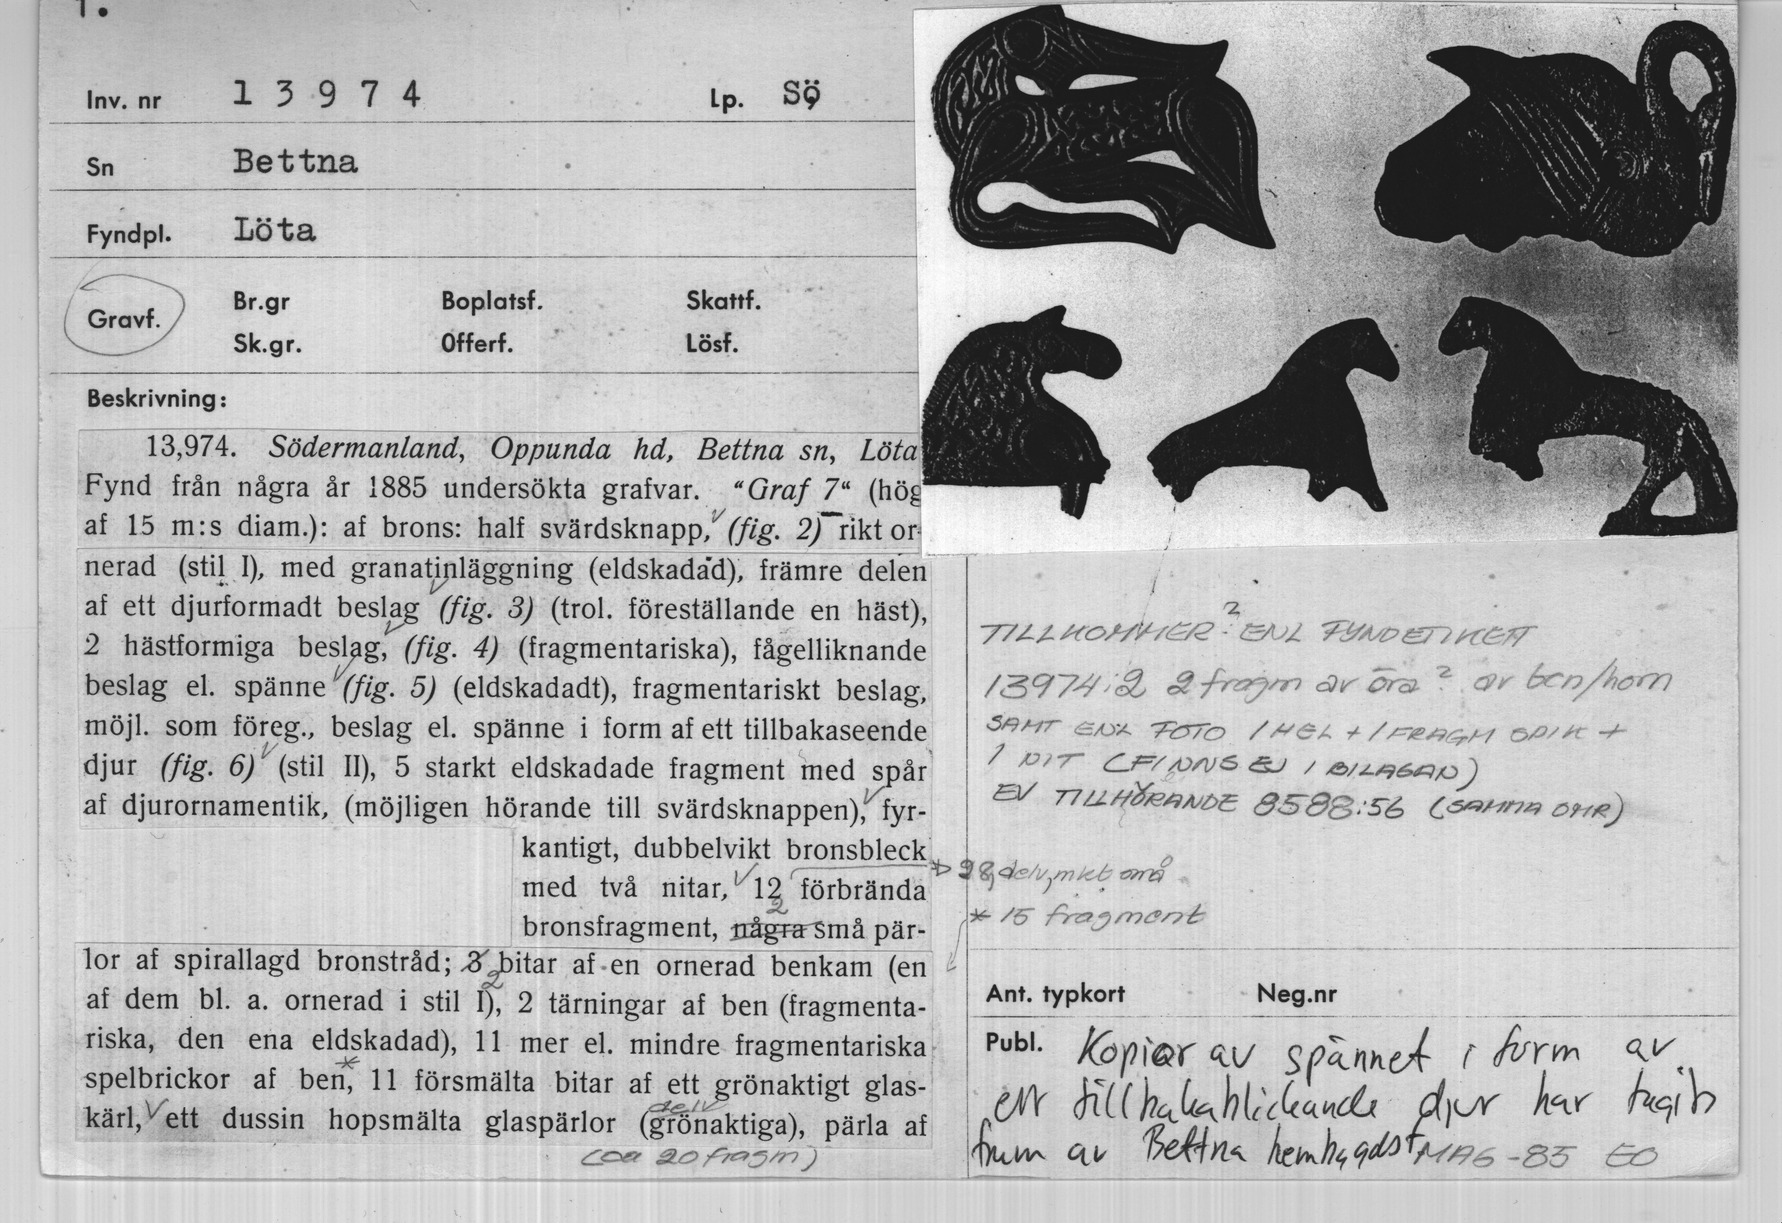 1.
Inv. nr 13974 Lp. Sö
Sn Bettna
Fyndpl. Löta
Gravf. Br.gr Boplatsf. Skattf.
Sk.gr. Offerf. Lösf.
Beskrivning:
13,974. Södermanland, Oppunda hd, Bettna sn, Löta
Fynd från några år 1885 undersökta grafvar. “Graf 7“ (hög
af 15 m:s diam.): af brons: half svärdsknapp, (fig. 2) rikt or-
nerad (stil I), med granatinläggning (eldskadad), främre delen
af ett djurformadt beslag (fig. 3) (trol. föreställande en häst),
2 hästformiga beslag, (fig. 4) (fragmentariska), fågelliknande
beslag el. spänne (fig. 5) (eldskadadt), fragmentariskt beslag,
möjl. som föreg., beslag el. spänne i form af ett tillbakaseende
djur (fig. 6) (stil II), 5 starkt eldskadade fragment med spår
af djurornamentik, (möjligen hörande till svärdsknappen), fyr-
kantigt, dubbelvikt bronsbleck
med två nitar, 12 förbrända
2
bronsfragment, några små pär-
lor af spirallagd bronstråd; 3 bitar af en ornerad benkam (en
2
af dem bl. a. ornerad i stil I), 2 tärningar af ben (fragmenta-
riska, den ena eldskadad), 11 mer el. mindre fragmentariska
spelbrickor af ben,* 11 försmälta bitar af ett grönaktigt glas-
delv
kärl, ett dussin hopsmälta glaspärlor (grönaktiga), pärla af
(ca 20 fragm)
TILLKOMMER? ENL FYNDETIKETT
13974:2 2 fragm av öra? av ben/horn
SAMT ENL FOTO 1 HEL + 1 FRAGM SPIK +
1 NIT (FINNS EJ I BILAGAN)
EV TILLHÖRANDE 8588:56 (SAMMA OMR)
28, delv, mkt små
* 15 fragment
Ant. typkort Neg.nr
Publ. Kopior av spännet i form av
ett tillbakablickande djur har tagits
fram av Bettna hembygdsf MAG -85 EO